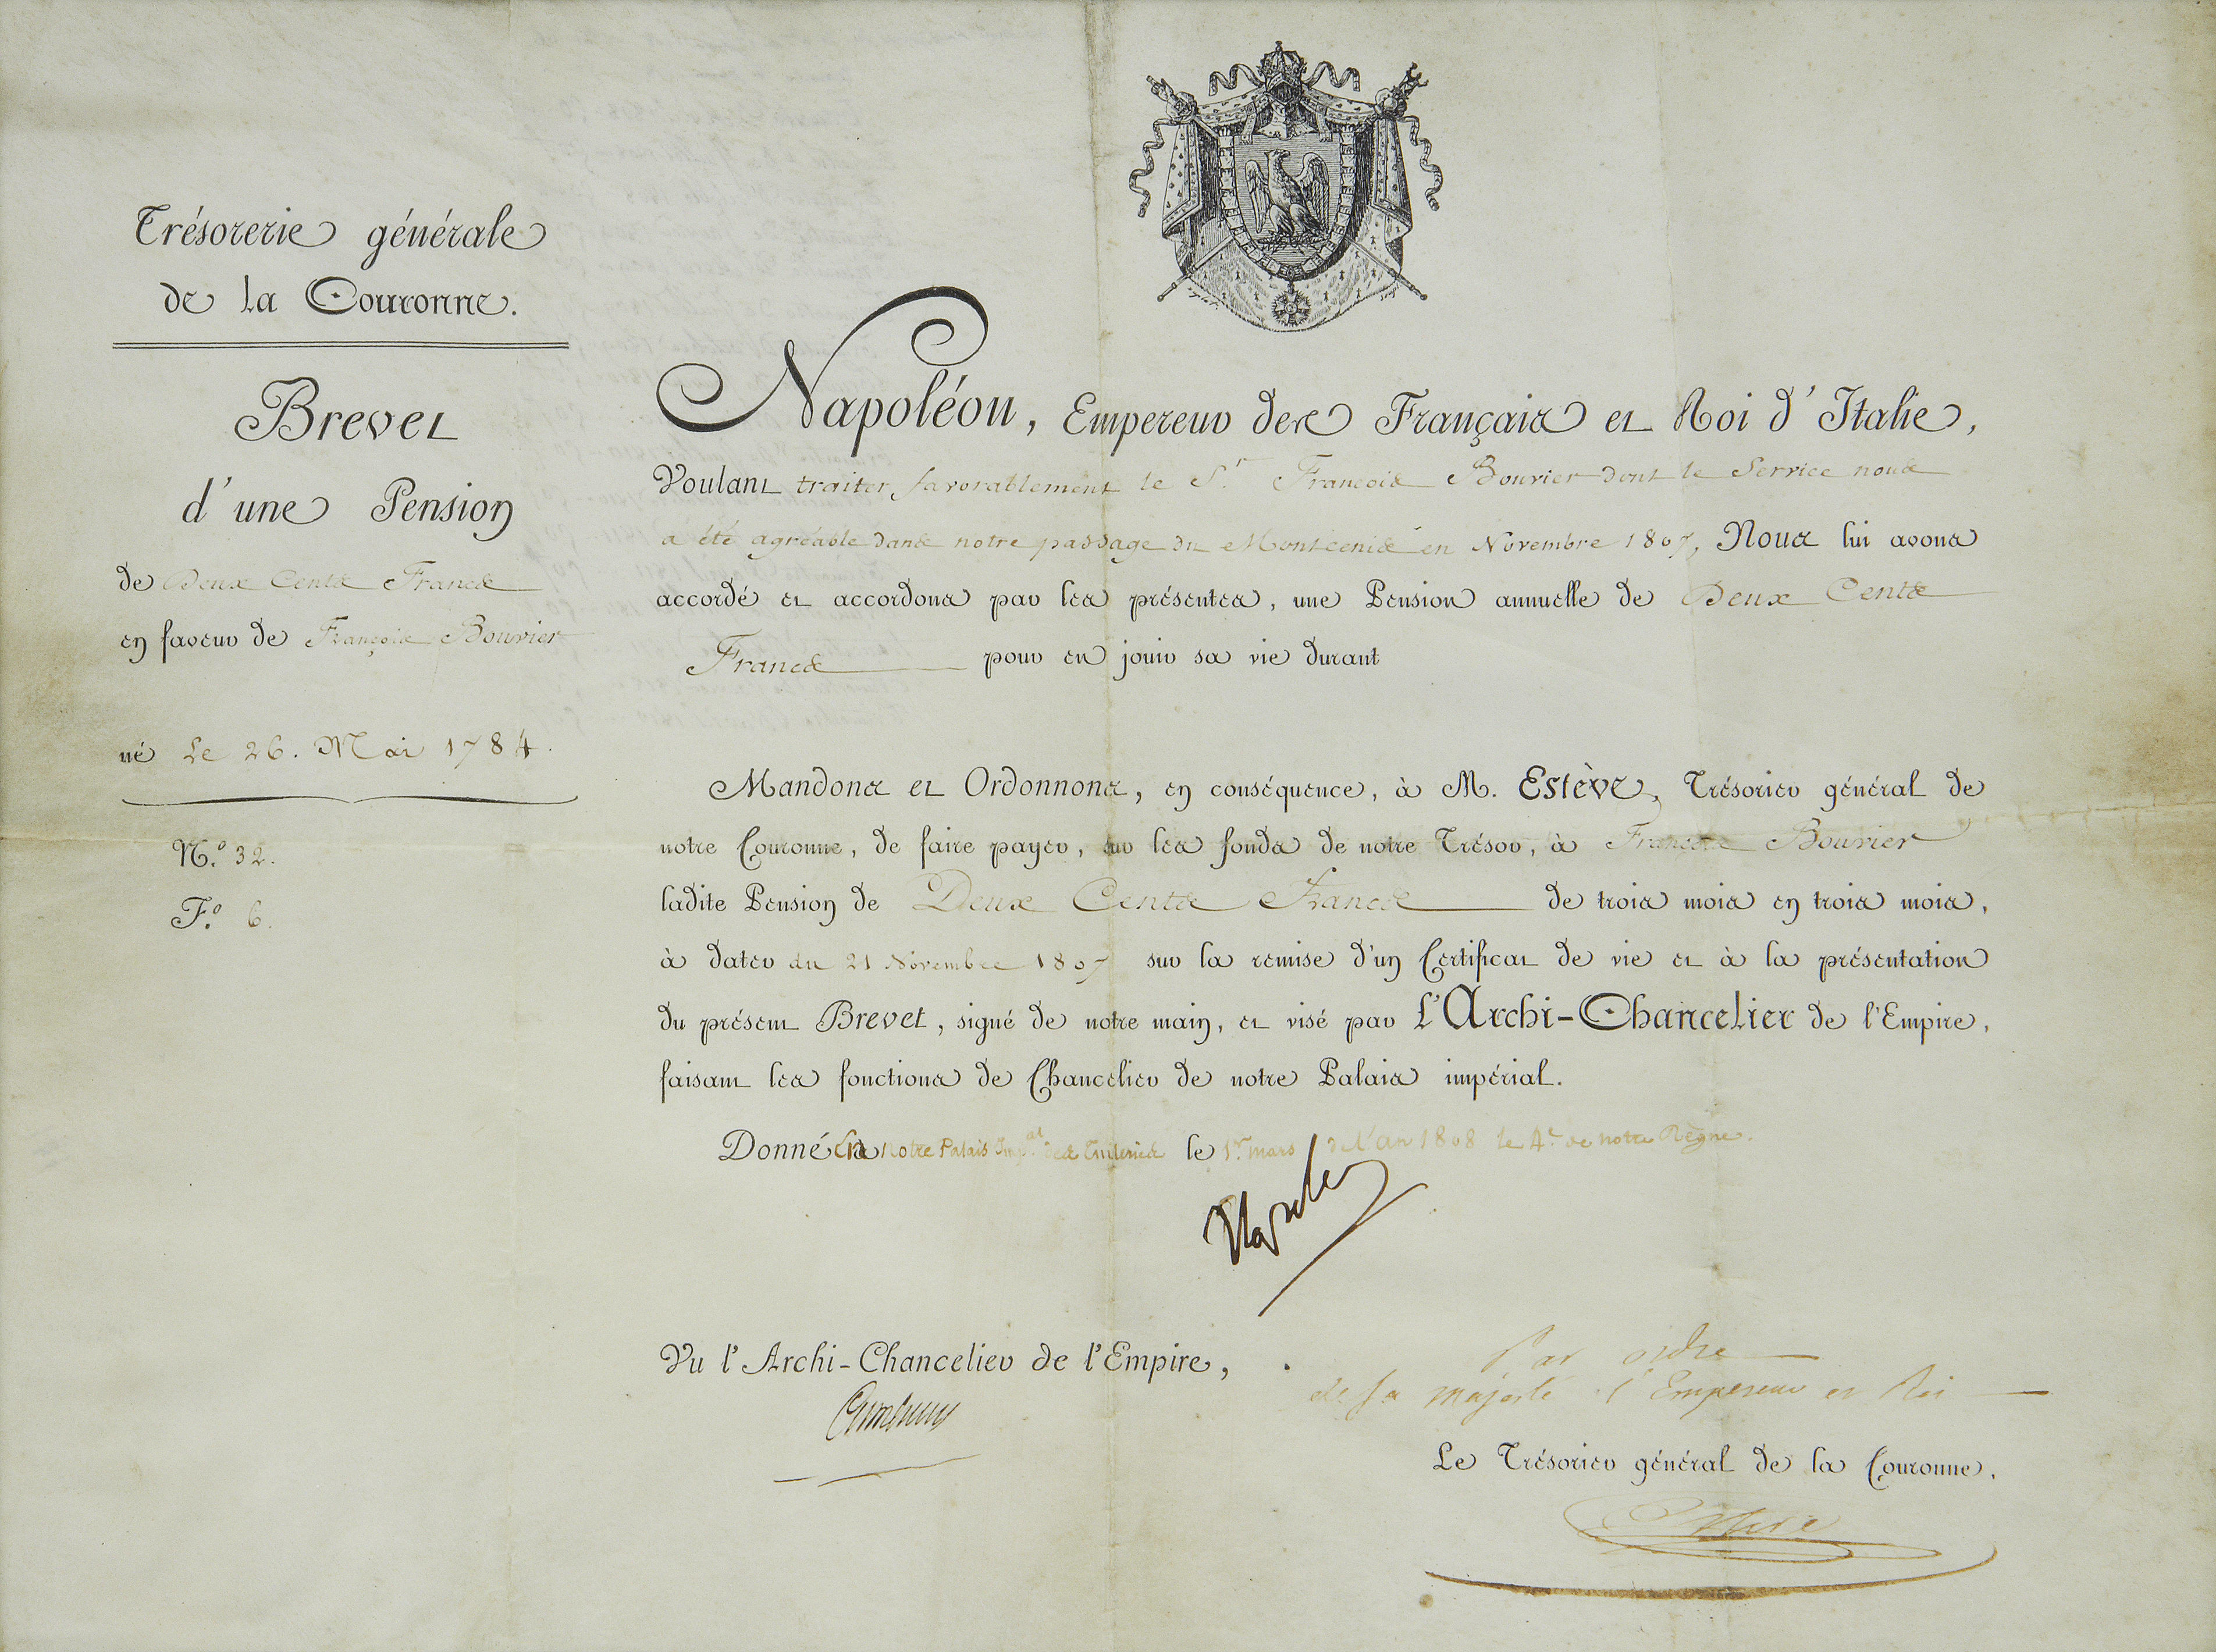 Trésorerie générale
de la Couronne.
Brevet
d'une Pension
de Deux Cents Francs
en faveur de François Bouvier
né Le 26. Mai 1784.
N.º 32.
F.º 6.
Napoléon, Empereur des Français et Roi d'Italie,
Voulant traiter favorablement le S.r François Bouvier dont le Service nous
a été agréable dans notre passage du Montcenis en Novembre 1807, Nous lui avons
accordé et accordons par les présentes, une Pension annuelle de Deux Cents
Francs pour en jouir sa vie durant
Mandons et Ordonnons, en conséquence, à M. Estève, Trésorier général de
notre Couronne, de faire payer, sur les fonds de notre Trésor, à François Bouvier
ladite Pension de Deux Cents Francs de trois mois en trois mois,
à dater du 21 Novembre 1807 sur la remise d'un Certificat de vie et à la présentation
du présent Brevet, signé de notre main, et visé par L'Archi-Chancelier de l'Empire,
faisant les fonctions de Chancelier de notre Palais impérial.
Donné en notre Palais Imp.al des Tuileries le 1.er mars de l'an 1808 le 4.e de notre Règne.
Vu l'Archi-Chancelier de l'Empire,
Par ordre
de Sa Majesté l'Empereur et Roi
Le Trésorier général de la Couronne,
Estève